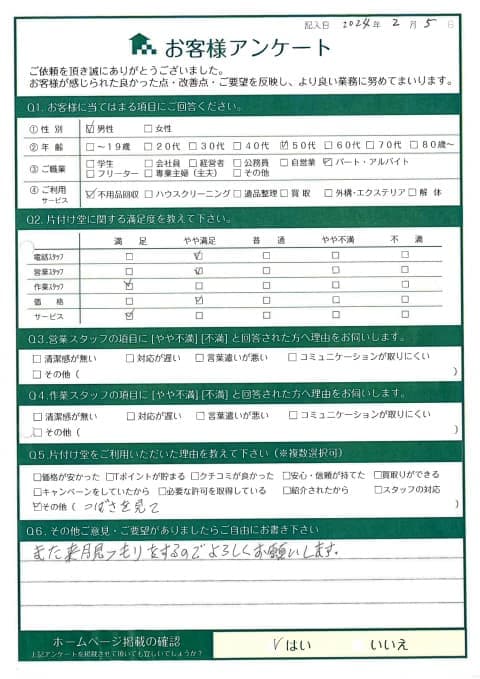 記入日 2024年 2月 5日
お客様アンケート
ご依頼を頂き誠にありがとうございました。
お客様が感じられた良かった点・改善点・ご要望を反映し、より良い業務に努めてまいります。
Q1. お客様に当てはまる項目にご回答ください。
① 性 別 ☑男性 □女性
② 年 齢 □～19歳 □20代 □30代 □40代 ☑50代 □60代 □70代 □80歳～
③ ご職業 □学生 □会社員 □経営者 □公務員 □自営業 ☑パート・アルバイト
□フリーター □専業主婦（主夫） □その他
④ ご利用サービス ☑不用品回収 □ハウスクリーニング □遺品整理 □買 取 □外構・エクステリア □解 体
Q2. 片付け堂に関する満足度を教えて下さい。
満 足 やや満足 普 通 やや不満 不 満
電話スタッフ □ ☑ □ □ □
営業スタッフ □ ☑ □ □ □
作業スタッフ ☑ □ □ □ □
価 格 □ ☑ □ □ □
サービス ☑ □ □ □ □
Q3. 営業スタッフの項目に [やや不満] [不満] と回答された方へ理由をお伺いします。
□清潔感が無い □対応が遅い □言葉遣いが悪い □コミュニケーションが取りにくい
□その他（ ）
Q4. 作業スタッフの項目に [やや不満] [不満] と回答された方へ理由をお伺いします。
□清潔感が無い □対応が遅い □言葉遣いが悪い □コミュニケーションが取りにくい
□その他（ ）
Q5. 片付け堂をご利用いただいた理由を教えて下さい（※複数選択可）
□価格が安かった □Tポイントが貯まる □クチコミが良かった □安心・信頼が持てた □買取りができる
□キャンペーンをしていたから □必要な許可を取得している □紹介されたから □スタッフの対応
☑その他（ つばさを見て ）
Q6. その他ご意見・ご要望がありましたらご自由にお書き下さい
また来月見つもりをするのでよろしくお願いします。
ホームページ掲載の確認 ☑はい □いいえ
上記アンケートを掲載させて頂いても宜しいでしょうか？